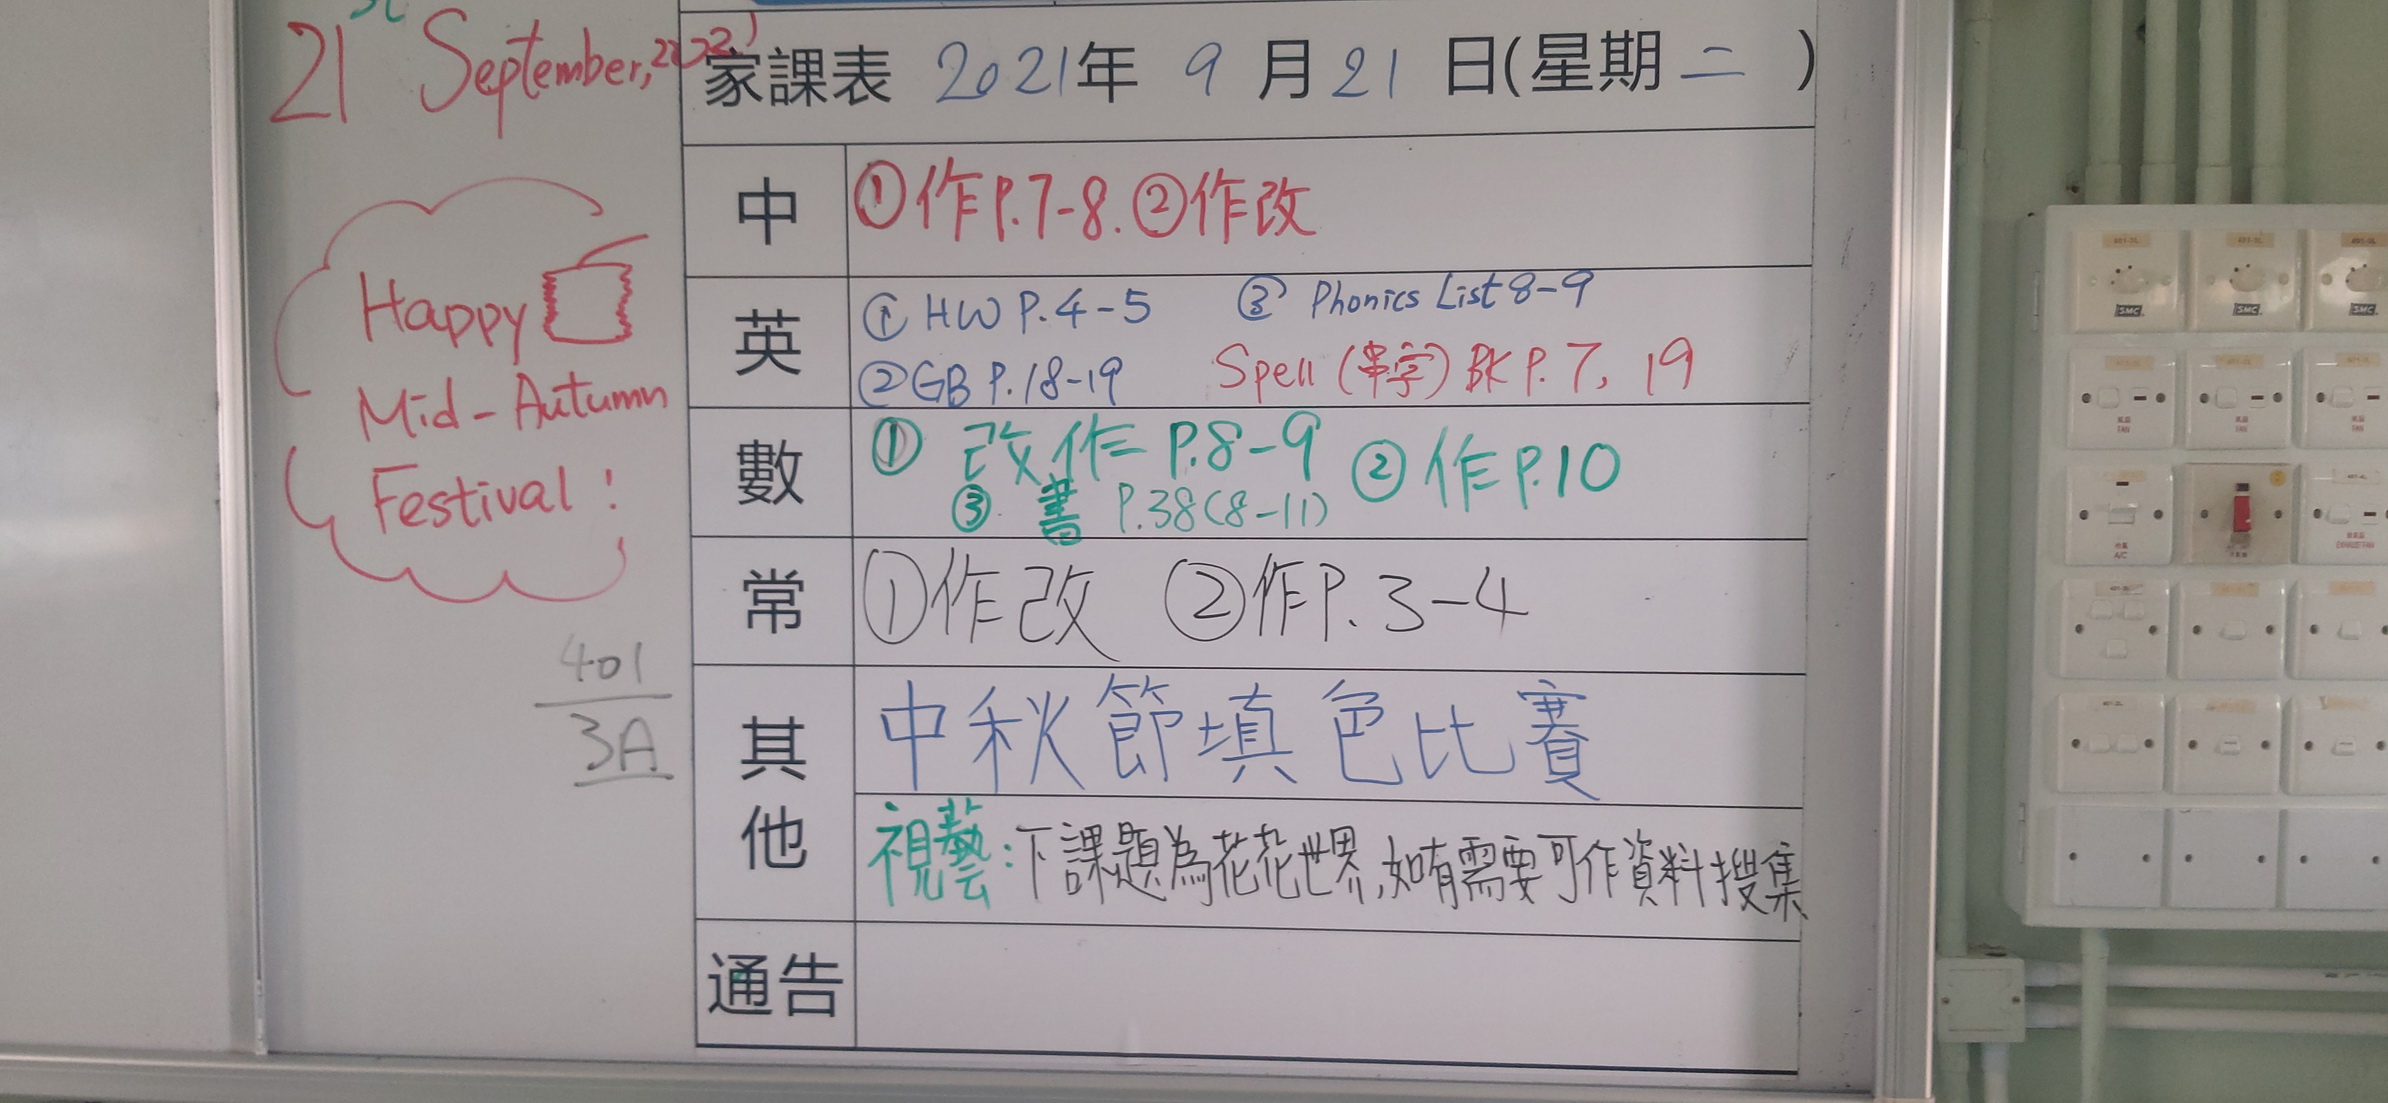 21st September, 2021
Happy
Mid-Autumn
Festival!
401
3A
家課表 2021年 9 月 21 日(星期 二 )
中
①作P.7-8. ②作改
英
① HW P.4-5 ③ Phonics List 8-9
②GB P.18-19 Spell (串字) BK P.7, 19
數
① 改作 P.8-9 ② 作P.10
③ 書 P.38(8-11)
常
①作改 ②作P.3-4
其他
中秋節填色比賽
視藝:下課題為花花世界,如有需要可作資料搜集
通告
SMC SMC SMC
FAN FAN FAN
A/C
EXHAUST FAN